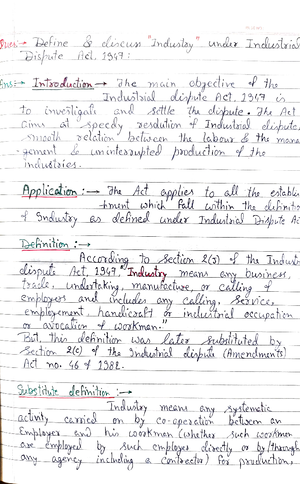 Ques:→ Define & discuss "Industry" under Industrial
Dispute Act, 1947:
Ans:→ Introduction → The main objective of the
Industrial dispute Act, 1947 is
to investigate and settle the dispute. The Act
aims at speedy resolution of Industrial dispute,
smooth relation between the labour & the mana
-gement & uninterrupted production of the
industries.
Application:→ The Act applies to all the establi
-shment which fall within the definitio
of Industry as defined under Industrial Dispute Ac
Definition:→
According to Section 2(J) of the Industr
dispute Act, 1947. "Industry means any business,
trade, undertaking, manufacture, or calling of
employers and includes any calling, service,
employement, handicraft or industrial occupation
or avocation of workman."
But, this definition was later substituted by
Section 2(c) of the Industrial dispute (Amendments)
Act no. 46 of 1982.
Substitute definition:→
Industry means any systematic
activity carried on by co-operation between an
Employer and his workman (whether such workman
are employed by such employer directly or by/through
any agency including a contractor) for production,